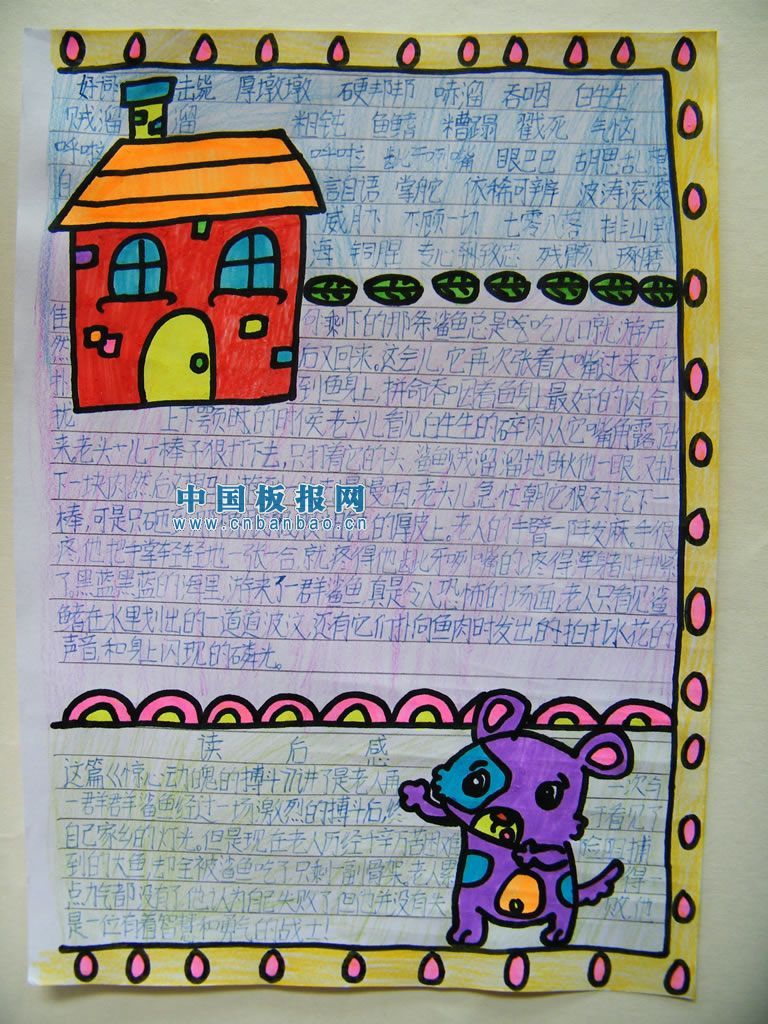 好词 击毙 厚墩墩 硬邦邦 嘀溜 吞咽 白生生
贼溜 溜 粗钝 鱼鳍 糟蹋 戳死 气恼
呼啦 呼啦 龇牙咧嘴 眼巴巴 胡思乱想
自 言自语 掌舵 依稀可辨 波涛滚滚
威胁 不顾一切 七零八落 排山倒
海 铜腥 专心致志 残骸 琢磨
佳 剩下的那条鲨鱼总是咬吃几口就游开
然 后又回来。这会儿,它再次张着大嘴过来了。它
扑 到鱼身上,拼命吞咽着鱼身上最好的肉,合
拢 上下颚时的时侯老头儿看见白生生的碎肉从它嘴角露出
来老头儿一棒子狠打下去,只打着它的头,鲨鱼贼溜溜地瞅他一眼,又扯
下一块肉然后 老头儿急忙朝它狠劲
棒,可是只砸 的厚皮上。老人的手臂一阵发麻。手很
疼,他把手掌轻轻地一张一合,就疼得他龇牙咧嘴的,疼得浑身
了。黑蓝黑蓝的海里,游来了一群鲨鱼,真是令人恐怖的场面,老人只看见鲨
鳍在水里划出的一道道波汶,还有它们扑向鱼肉时发出的拍打水花的
声音和身上闪现的磷光。
中国板报网
www.cnbanbao.cn
读 后 感
这篇《惊心动魄的搏斗》讲了是老人再 一次与
一群群鲨鱼经过一场激烈的搏斗后,终 于看见了
自己家乡的灯光。但是现在老人历经千辛万苦 捕
到的大鱼却全被鲨鱼吃了只剩下副骨架。老人累 得一
点力气都没有了,他认为自己失败了,但他并没有失 败,他
是一位有着智慧和勇气的战士!